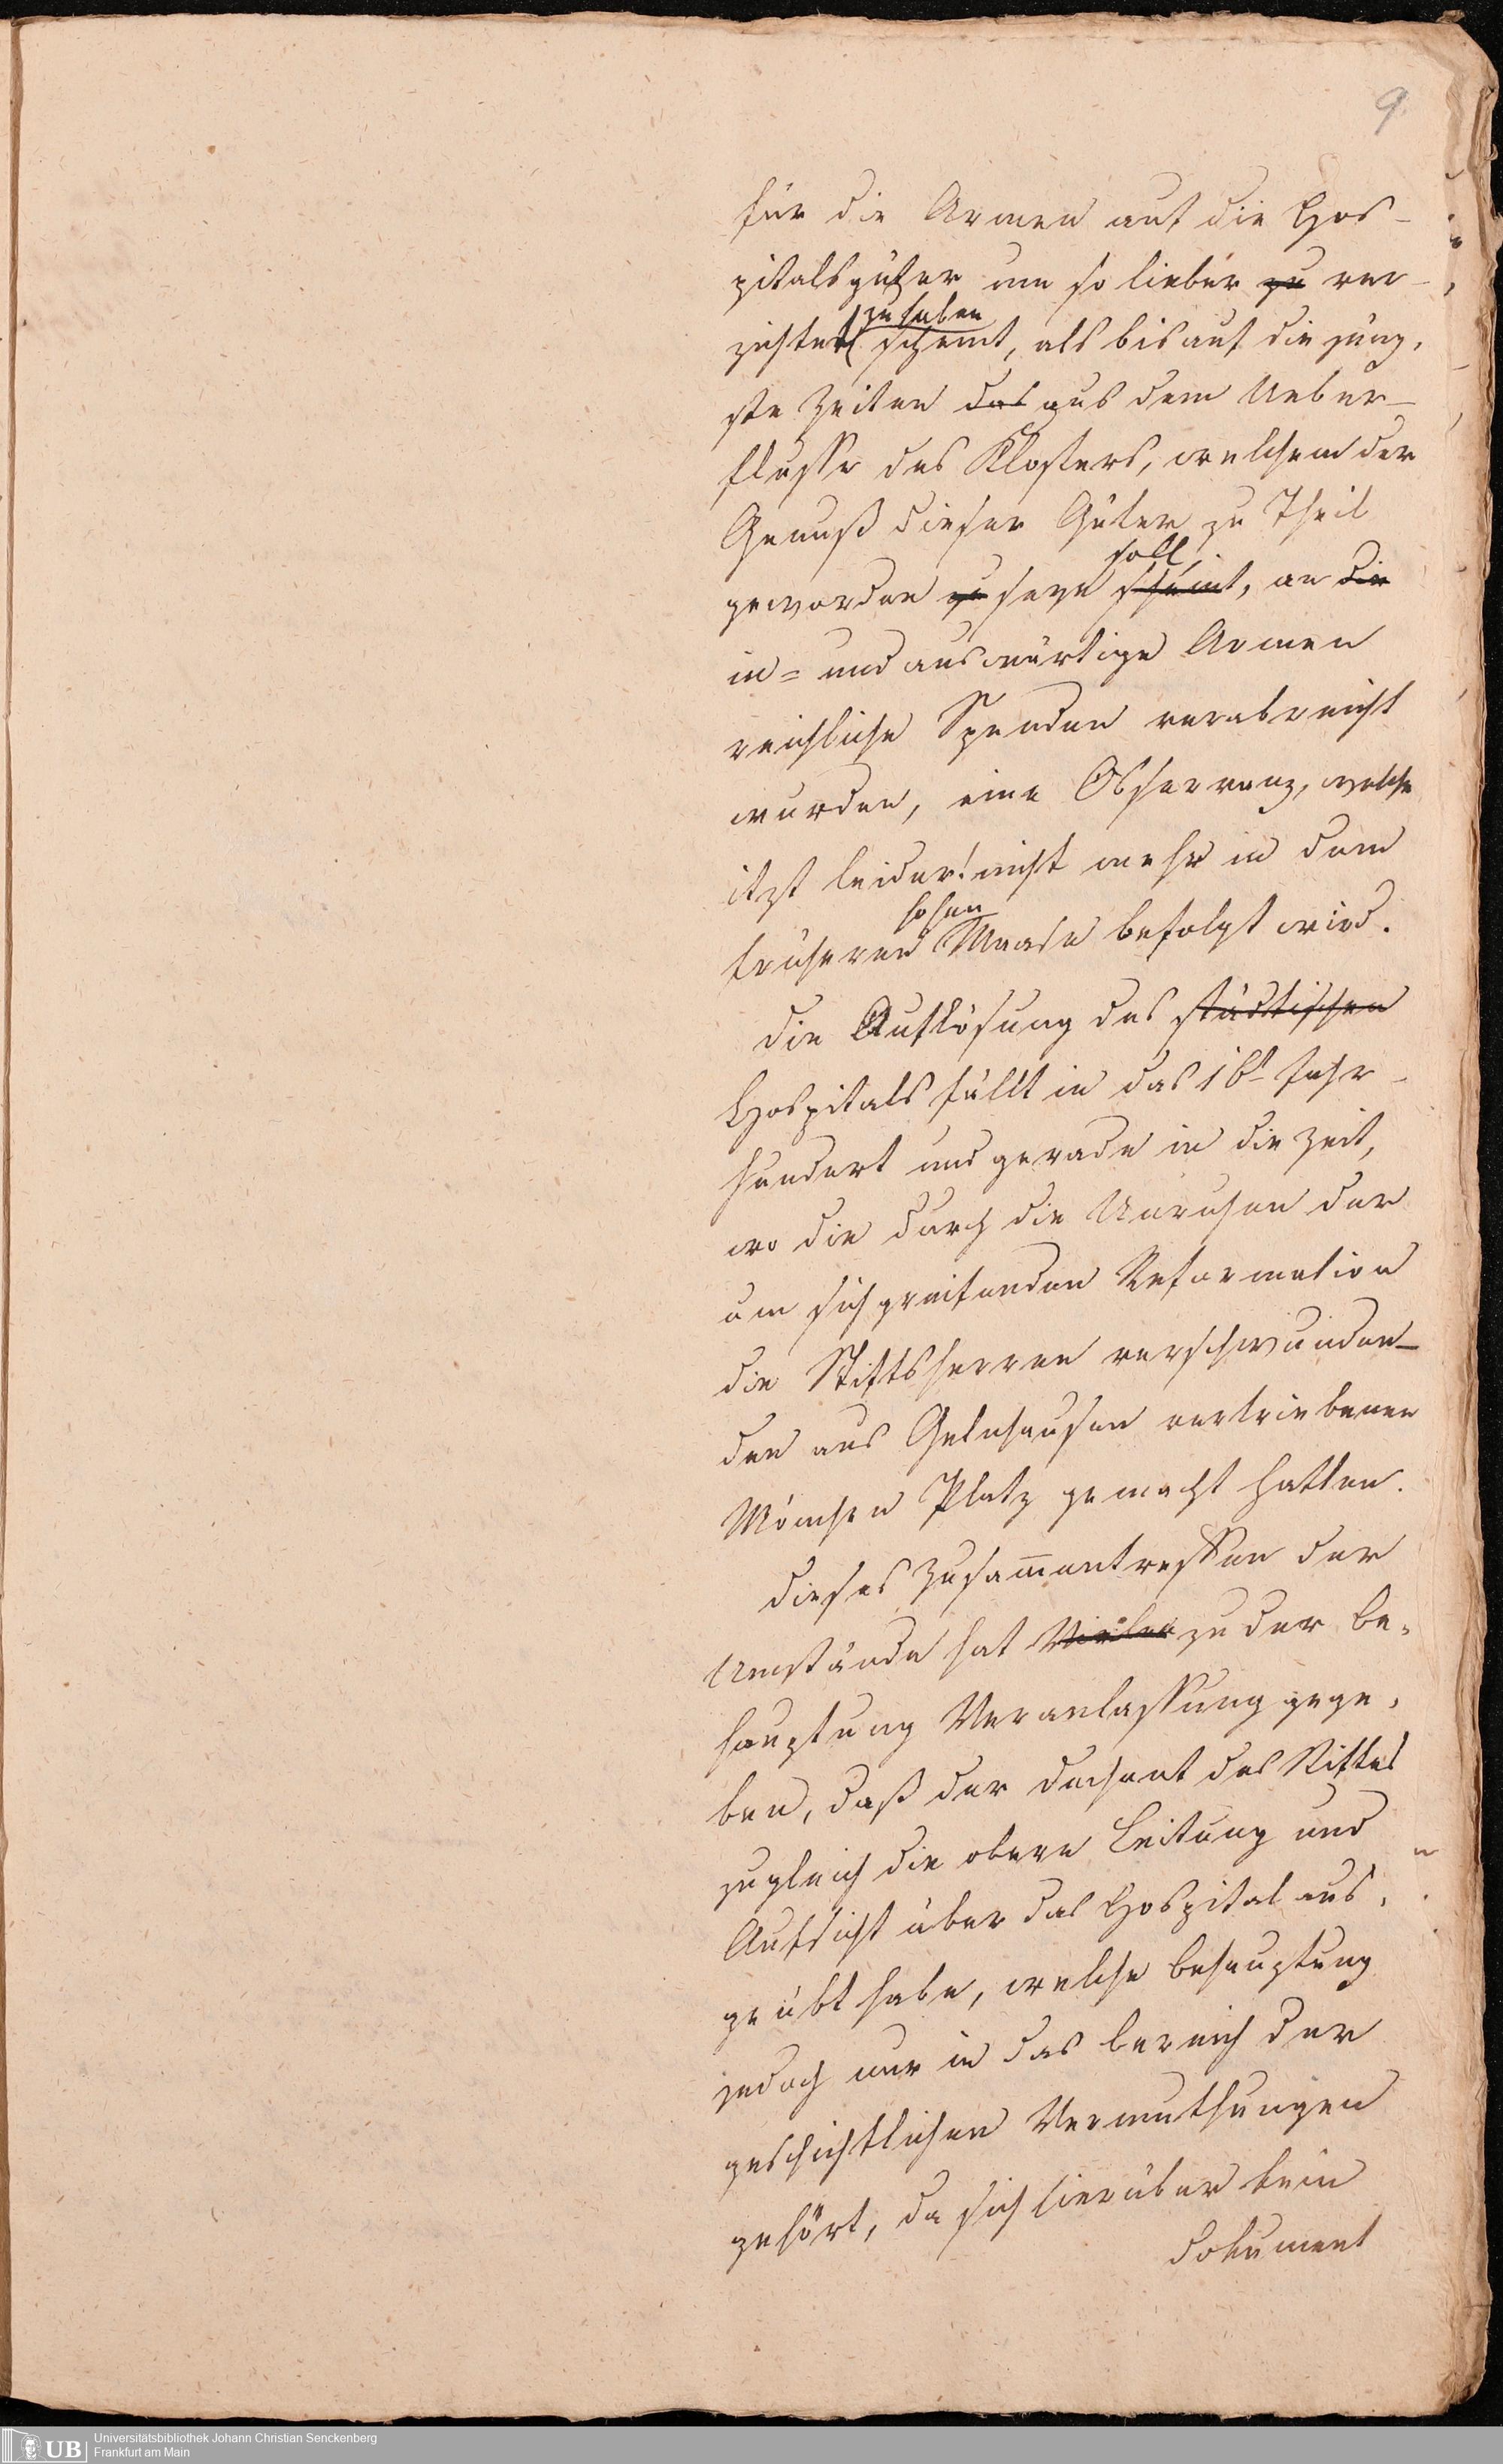 9.
für die Armen auf die Hos-
pitalsgüter um so lieber zu ver-
zu haben
zichtet scheint, als bis auf die jüng-
ste Zeiten das aus dem Ueber-
flusse des Klosters, welchem der
Genuß dieser Güter zu Theil
soll
geworden zu seyn scheint, an die
in- und auswärtige Armen
reichliche Spenden verabreicht
wurden, eine Observanz, welche
itzt leider! nicht mehr in dem
hohen
früheren Maase befolgt wird.
Die Auflösung des städtischen
Hospitals fällt in das 16t Jahr-
hundert und gerade in die Zeit,
wo die durch die Unruhen der
um sich greifenden Reformation
die Stiftsherren verschwunden-
den aus Gelnhausen vertriebenen
Mönchen Platz gemacht hatten.
Dieses Zusam̅entreffen der
Umstände hat Vielen zu der Be-
hauptung Veranlassung gege-
ben, daß der Dechant des Stiftes
zugleich die obere Leitung und
Aufsicht über das Hospital aus-
geübt habe, welche Behauptung
jedoch nur in das Bereich der
geschichtlichen Vermuthungen
gehört, da sich hierüber kein
Dokument
UB
Universitätsbibliothek Johann Christian Senckenberg
Frankfurt am Main